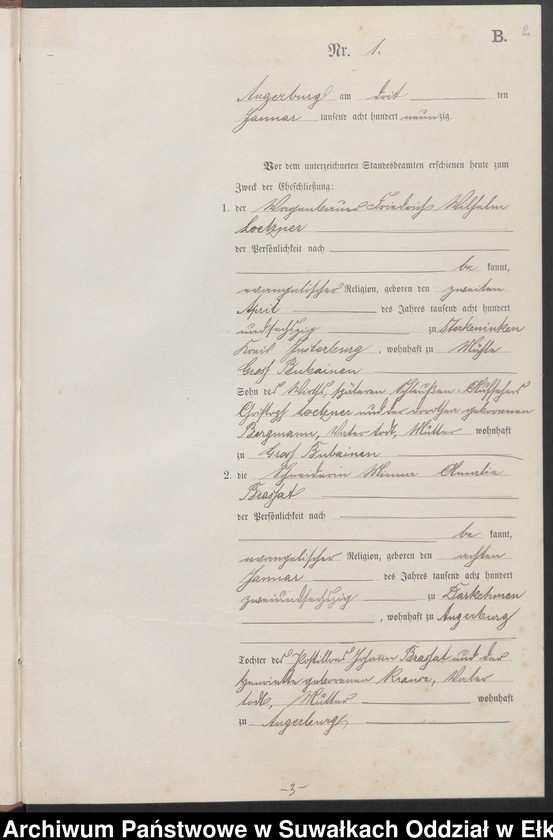 B. 2
Nr. 1.
Angerburg am drit ten
Januar tausend acht hundert neunzig.
Vor dem unterzeichneten Standesbeamten erschienen heute zum
Zweck der Eheschließung:
1. der Wagenbauer Friedrich Wilhelm
Loetzner
der Persönlichkeit nach
be kannt,
evangelischer Religion, geboren den zweiten
April des Jahres tausend acht hundert
undsechszig zu Sterkeninken
Kreis Insterburg, wohnhaft zu Mühle
Gross Bubainen
Sohn des Wirths, späteren Schleußen-Aufsehers
Christoph Loetzner und der Dorothea geborenen
Bergmann, Vater todt, Mutter wohnhaft
zu Gross Bubainen
2. die Schneiderin Minna Amalie
Brassat
der Persönlichkeit nach
be kannt,
evangelischer Religion, geboren den achten
Januar des Jahres tausend acht hundert
zweiundsechszig zu Darkehmen
, wohnhaft zu Angerburg
Tochter des Postillons Johann Brassat und der
Henriette geborenen Krause, Vater
todt, Mutter wohnhaft
zu Angerburg,
-3-
Archiwum Państwowe w Suwałkach Oddział w Ełk